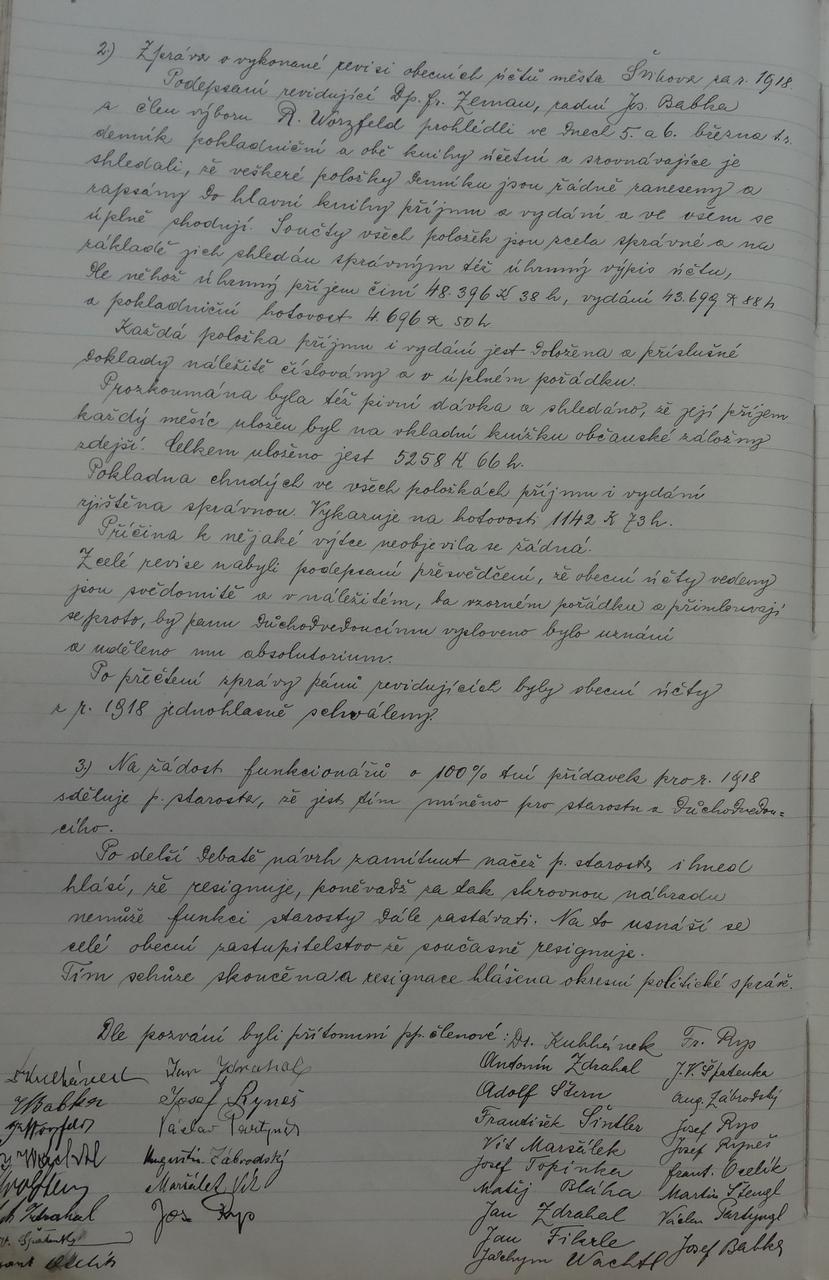 2.) Zpráva o vykonané revisi obecních účtů města Švihova za r. 1918.
Podepsaní revidující Dp. fr. Zeman, radní Jos. Babka
a člen výboru R. Wörzfeld prohlédli ve dnech 5. a 6. března t.r.
denník pokladniční a obě knihy účetní a srovnávajíce je
shledali, že veškeré položky denníku jsou řádně zaneseny a
zapsány do hlavní knihy příjmu a vydání a ve všem se
úplně shodují. Součty všech položek jsou zcela správné a na
základě jich shledán správným též úhrnný výpis účtu,
dle něhož úhrnný příjem činí 48.396 K 38 h, vydání 43.699 K 88 h
a pokladniční hotovost 4.696 K 50 h
Každá položka příjmu i vydání jest doložena a příslušné
doklady náležitě číslovány a v úplném pořádku.
Prozkoumána byla též pivní dávka a shledáno, že její příjem
každý měsíc uložen byl na vkladní knížku občanské záložny
zdejší. Celkem uloženo jest 5258 K 66 h.
Pokladna chudých ve všech položkách příjmu i vydání
zjištěna správnou. Vykazuje na hotovosti 1142 K 73 h.
Příčina k nějaké výtce neobjevila se žádná.
Z celé revise nabyli podepsaní přesvědčení, že obecní účty vedeny
jsou svědomitě a v náležitém, ba vzorném pořádku a přimlouvají
se proto, by panu důchodvedoucímu vysloveno bylo uznání
a uděleno mu absolutorium.
Po přečtení zprávy pánů revidujících byly obecní účty
z r. 1918 jednohlasně schváleny.
3.) Na žádost funkcionářů o 100% tní přídavek pro r. 1918
sděluje p. starosta, že jest tím míněno pro starostu a důchodvedou=
cího.
Po delší debatě návrh zamítnut načež p. starosta ihned
hlásí, že resignuje, poněvadž za tak skrovnou náhradu
nemůže funkci starosty dále zastávati. Na to usnáší se
celé obecní zastupitelstvo že současně resignuje.
Tím schůze skončena a resignace hlášena okresní politické správě.
Dle pozvání byli přítomni pp. členové: Dr. Kulhánek Fr. Ryp
Kulhánek Jan Zdrahal Antonín Zdrahal J.V. Špatenka
Babka Josef Ryneš Adolf Štern Aug. Zábrodský
Václav Partyngl František Šintler Josef Ryp
Wachtl Augustin Zábrodský Vít Maršálek Josef Ryneš
Maršálek Vít Josef Topinka frant. Ocelík
Zdrahal Jos Ryp Matěj Bláha Martin Stengl
Jan Zdrahal Václav Partyngl
Špatenka Jan Fikrle Josef Babka
Ocelík Jáchym Wachtl